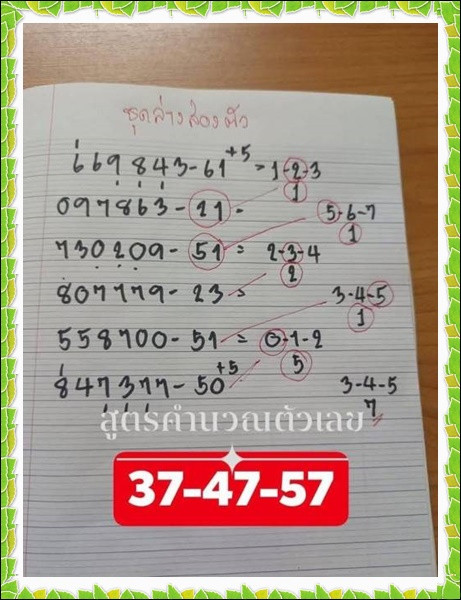 ชุดล่างสองตัว
669843-61+5=1-2-3
1
097863-21-
5-6-7
1
730209-51=2-3-4
2
807779-23-
3-4-5
1
558700-51=0-1-2
5
847377-50+5
3-4-5
7
สูตรคำนวณตัวเลข
37-47-57